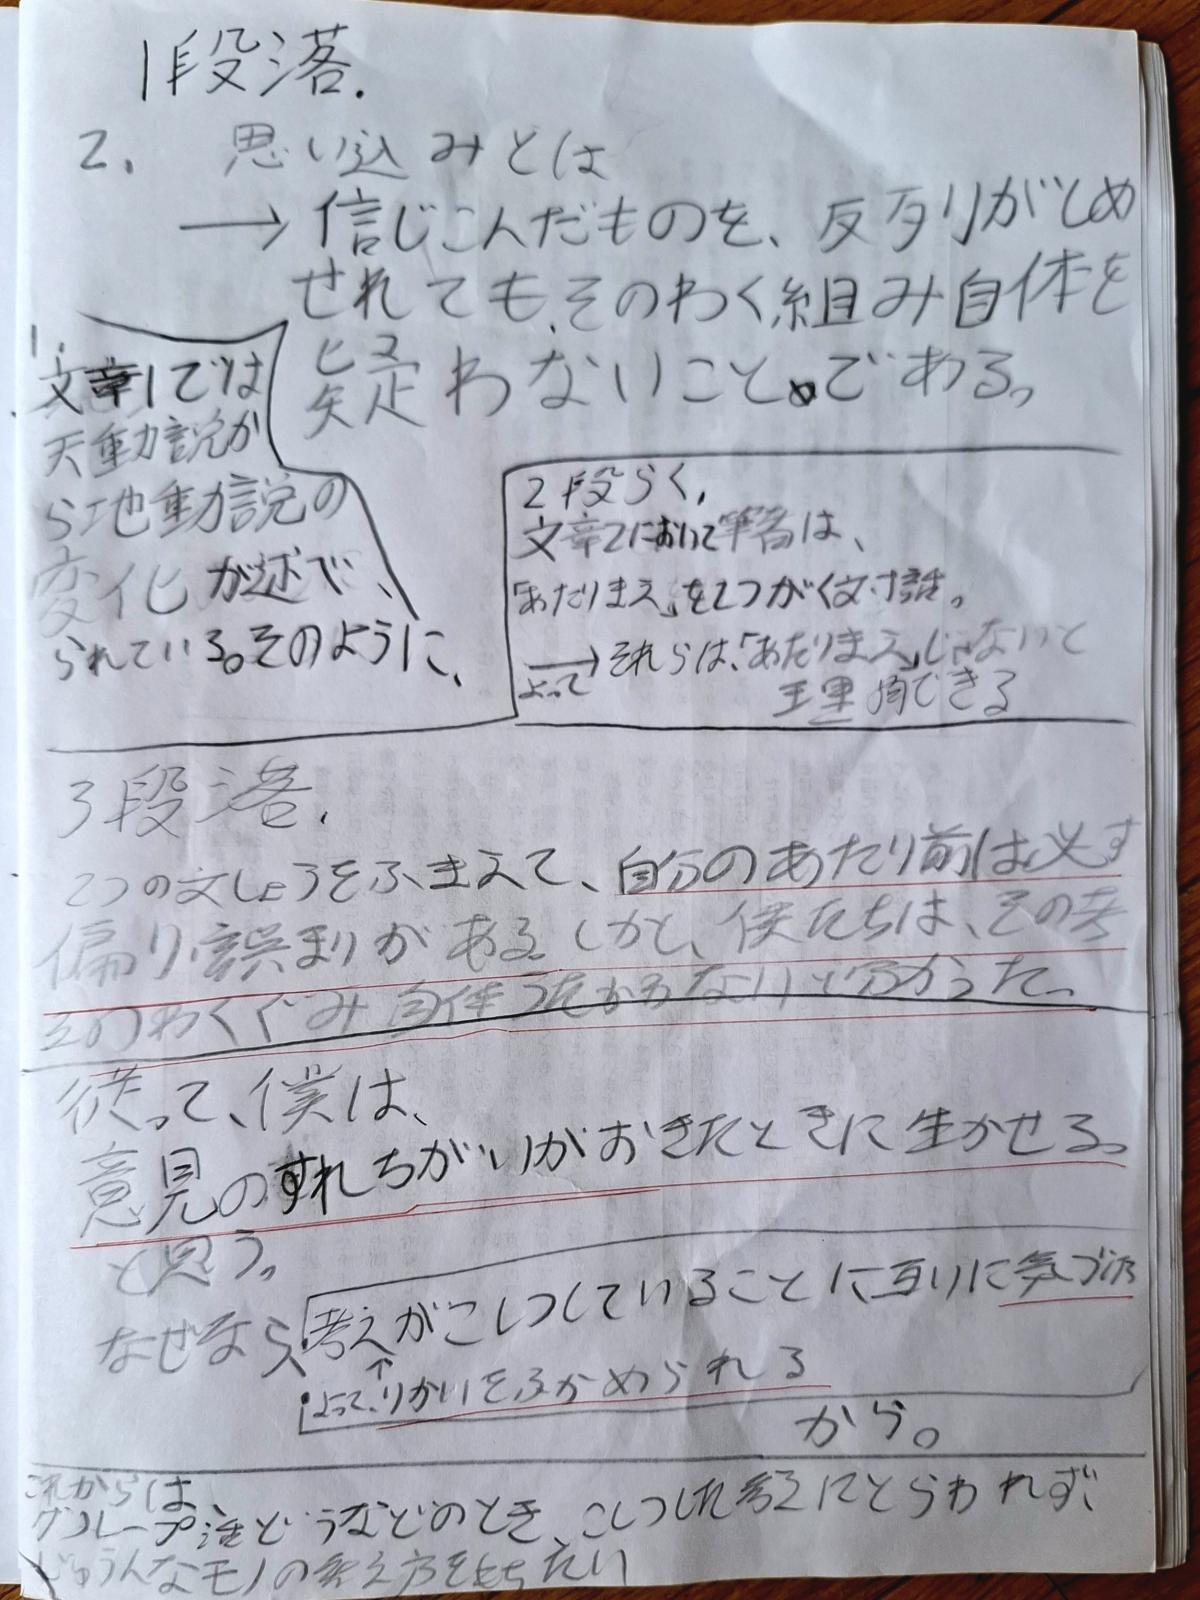 1段落.
2. 思い込みとは
→信じこんだものを、反対りがとめ
せれても、そのわく組み自体を
疑わないこと。である。
1.
文章1では
天動説か
ら地動説の
変化が述べ、
られている。そのように、
2段らく,
文章2において筆者は、
「あたりまえ」を2つがく文寸話。
よって→それらは、「あたりまえ」じゃないと
理角できる
3段落.
2つの文しょうをふまえて、自分のあたり前は必ず
偏り、誤まりがある。しかし、僕たちは、その考
そのわくぐみ自体うたがわないと分かった。
従って、僕は、
意見のすれちがいがおきたときに生かせる。
と思う。
なぜなら、考えがこしつしていることに互りに気づけ
↑
よって、りかいをふかめられる
から。
これからは
グループ活どうなどのとき、こしつした考えにとらわれず、
じゅうんなモノの考え方をもちたい